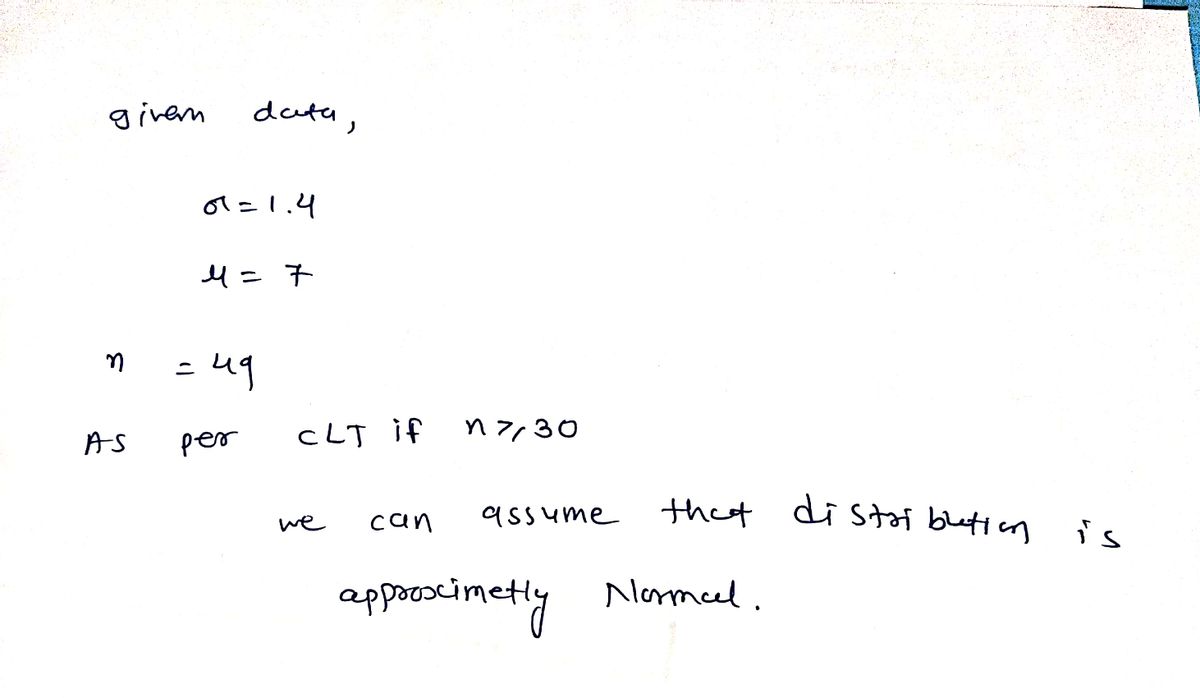 given data,
σ = 1.4
μ = 7
n = 49
As per CLT if n ≥ 30
we can assume that distribution is
approximetly Normal.